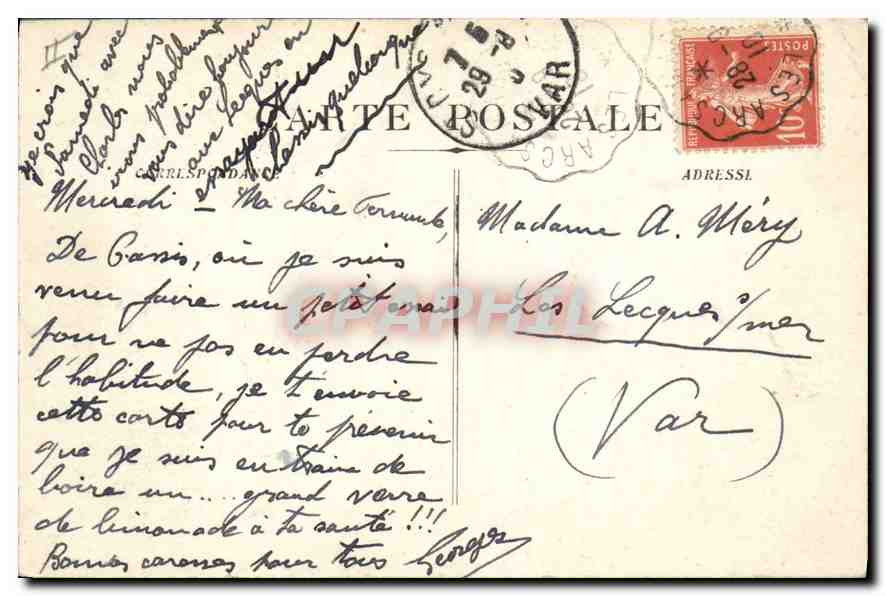 II
Je crois que
Samedi avec
Charles nous
irons probablement
vous dire bonjour
aux Lecques en
CARTE POSTALE
CORRESPONDANCE
ADRESSE
Mercredi - Ma chère Fernande,
De Cassis, où je suis
venu faire un petit essai
pour ne pas en perdre
l'habitude, je t'envoie
cette carte pour te prévenir
que je suis en train de
boire un.... grand verre
de limonade à ta santé !!!
Bonnes caresses pour tous Georges
Madame A. Méry
Les Lecques s/mer
(Var)
7 5
29 -8
VAR
LES ARCS
LES ARCS
28
10
REPUBLIQUE FRANÇAISE
POSTES
10c
CPAPHIL